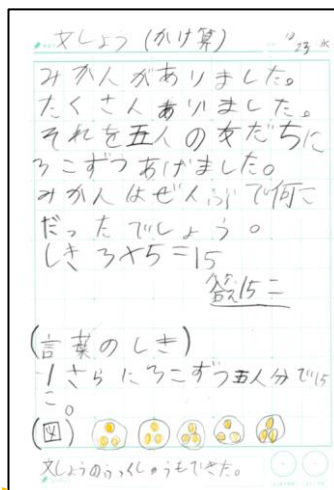 文しょう(かけ算)
23 水
みかんがありました。
たくさんありました。
それを五人の友だちに
3こずつあげました。
みかんはぜんぶで何こ
だったでしょう。
しき 3×5=15
答え15こ
(言葉のしき)
1さらに3こずつ五人分で15
こ。
(図)
文しょうのふくしゅうもできた。